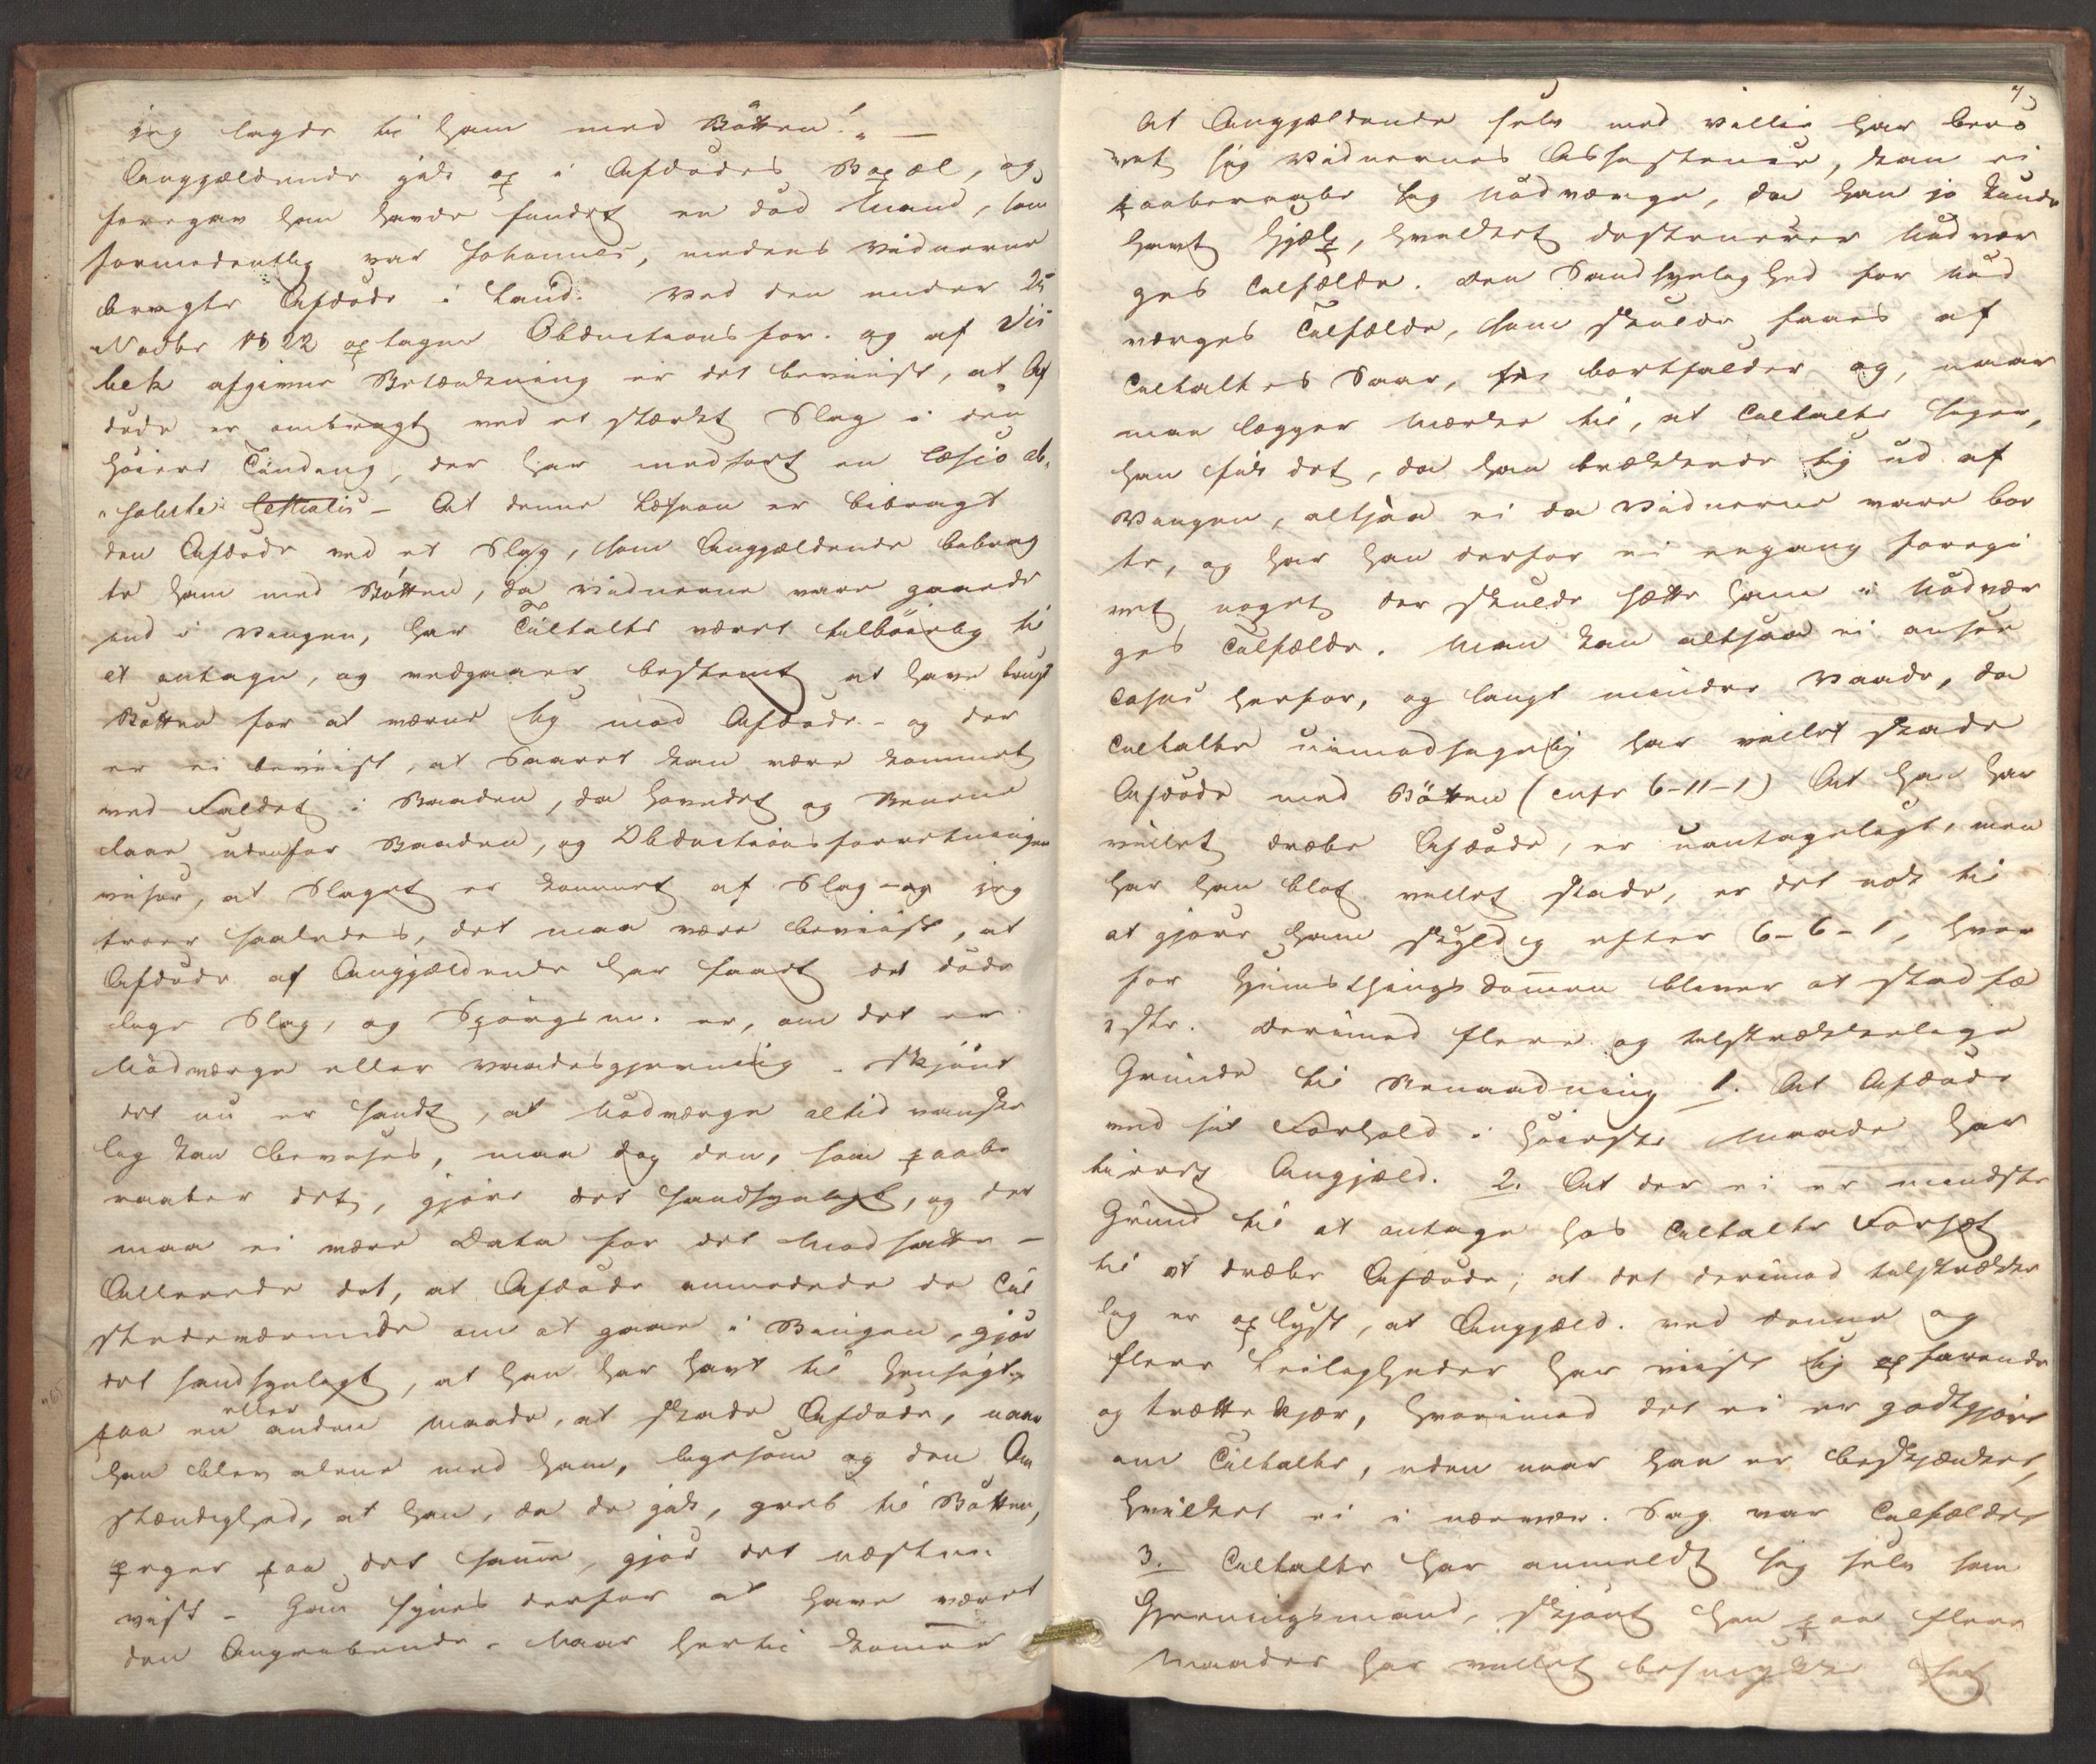 jeg lagde til ham med Bøtten!" —
Angjældende gik op i Afdødes Bopæl, og
foregav han havde fundet en død Mand, som
formodentlig var Johannes, medens Vidnerne
bragte Afdøde i Land. Ved den under 25
Novbr 1822 optagne Obductionsfor. og af Vis
bek afgivne Betænkning er det beviist, at Af
døde er ombragt ved et stærkt Slag i den
høire Tinding, der har medført en læsio ab-
"solute lethalis — At denne Læsion er bibragt
den Afdøde ved et Slag, som Angjældende bibrag
te ham med Bøtten, da Vidnerne vare gaaede
ind i Vaagen, har Tiltalte været tilbøielig til
at antage, og vedgaaer bestemt at have brugt
Bøtten for at værne sig mod Afdøde - og der
er ei beviist, at Saaret kan være kommet
ved Faldet i Baaden, da Hovedet og Benene
laae udenfor Baaden, og Obductionsforretningen
viser, at Slaget er kommet af Slag - og jeg
troer saaledes, det maa være beviist, at
Afdøde af Angjældende har faaet det døde
lige Slag, og Spørgsm. er, om det er
Nødværge eller Vaadesgjerning - Skjønt
det nu er sandt, at Nødværge altid vanske
lig kan bevises, maa dog den, som paabe
raaber det, gjøre det sandsynligt, og der
maa ei være Data for det Modsatte —
Allerede det, at Afdøde anmodede de Til
stedeværende om at gaae i Vaagen, gjør
det sandsynligt, at han har havt til Hensigt
paa en eller anden Maade, at skade Afdøde, naar
han blev alene med ham, ligesom og den Om
stændighed, at han, da de gik, greb til Bøtten,
peger paa det samme, gjør det næsten
vist - Han synes derfor at have været
den Angribende. Naar hertil kommer
7
At Angjældende selv med Villie har berø
vet sig Vidnernes Assistence, kan ei
paaberaabe sig Nødværge, da han jo kunde
havt Hjælp, hvilket destruerer Nødvær
ges Tilfælde. Den Sandsynlighed for Nød
værges Tilfælde, som skulde faaes af
Tiltaltes Saar, bortfalder og, naar
man lægger Mærke til, at Tiltalte siger,
han fik det, da han trækkede sig ud af
Vaagen, altsaa ei da Vidnerne vare bor
te, og har han derfor ei engang foregi
vet noget der skulde sætte ham i Nødvær
ges Tilfælde. Man kan altsaa ei ansee
Casus herfor, og langt mindre Vaade, da
Tiltalte uimodsigelig har villet skade
Afdøde med Bøtten (cnfr 6-11-1) At han har
villet dræbe Afdøde, er uantageligt, men
har han blot villet skade, er det nok til
at gjøre ham skyldig efter 6-6-1, hvor
for Hjemsthingsdommen bliver at stadfæ
ste. Derimod flere og tilstrækkelige
Grunde til Benaadning 1. At Afdøde
ved sit Forhold i høieste Maade har
tirret Angjæld. 2. At der ei er mindste
Grund til at antage hos Tiltalte Forsæt
til at dræbe Afdøde; at det derimod tilstrække
lig er oplyst, at Angjæld. ved denne og
flere Leiligheder har viist sig opfarende
og trættekjær, hvorimod det ei er godtgjort
om Tiltalte, uden naar han er beskjænket,
hvilket ei i nærvær. Sag var Tilfældet
3. Tiltalte har anmeldt sig selv som
Gjerningsmand, skjønt han paa flere
Maader har villet besmykke sit